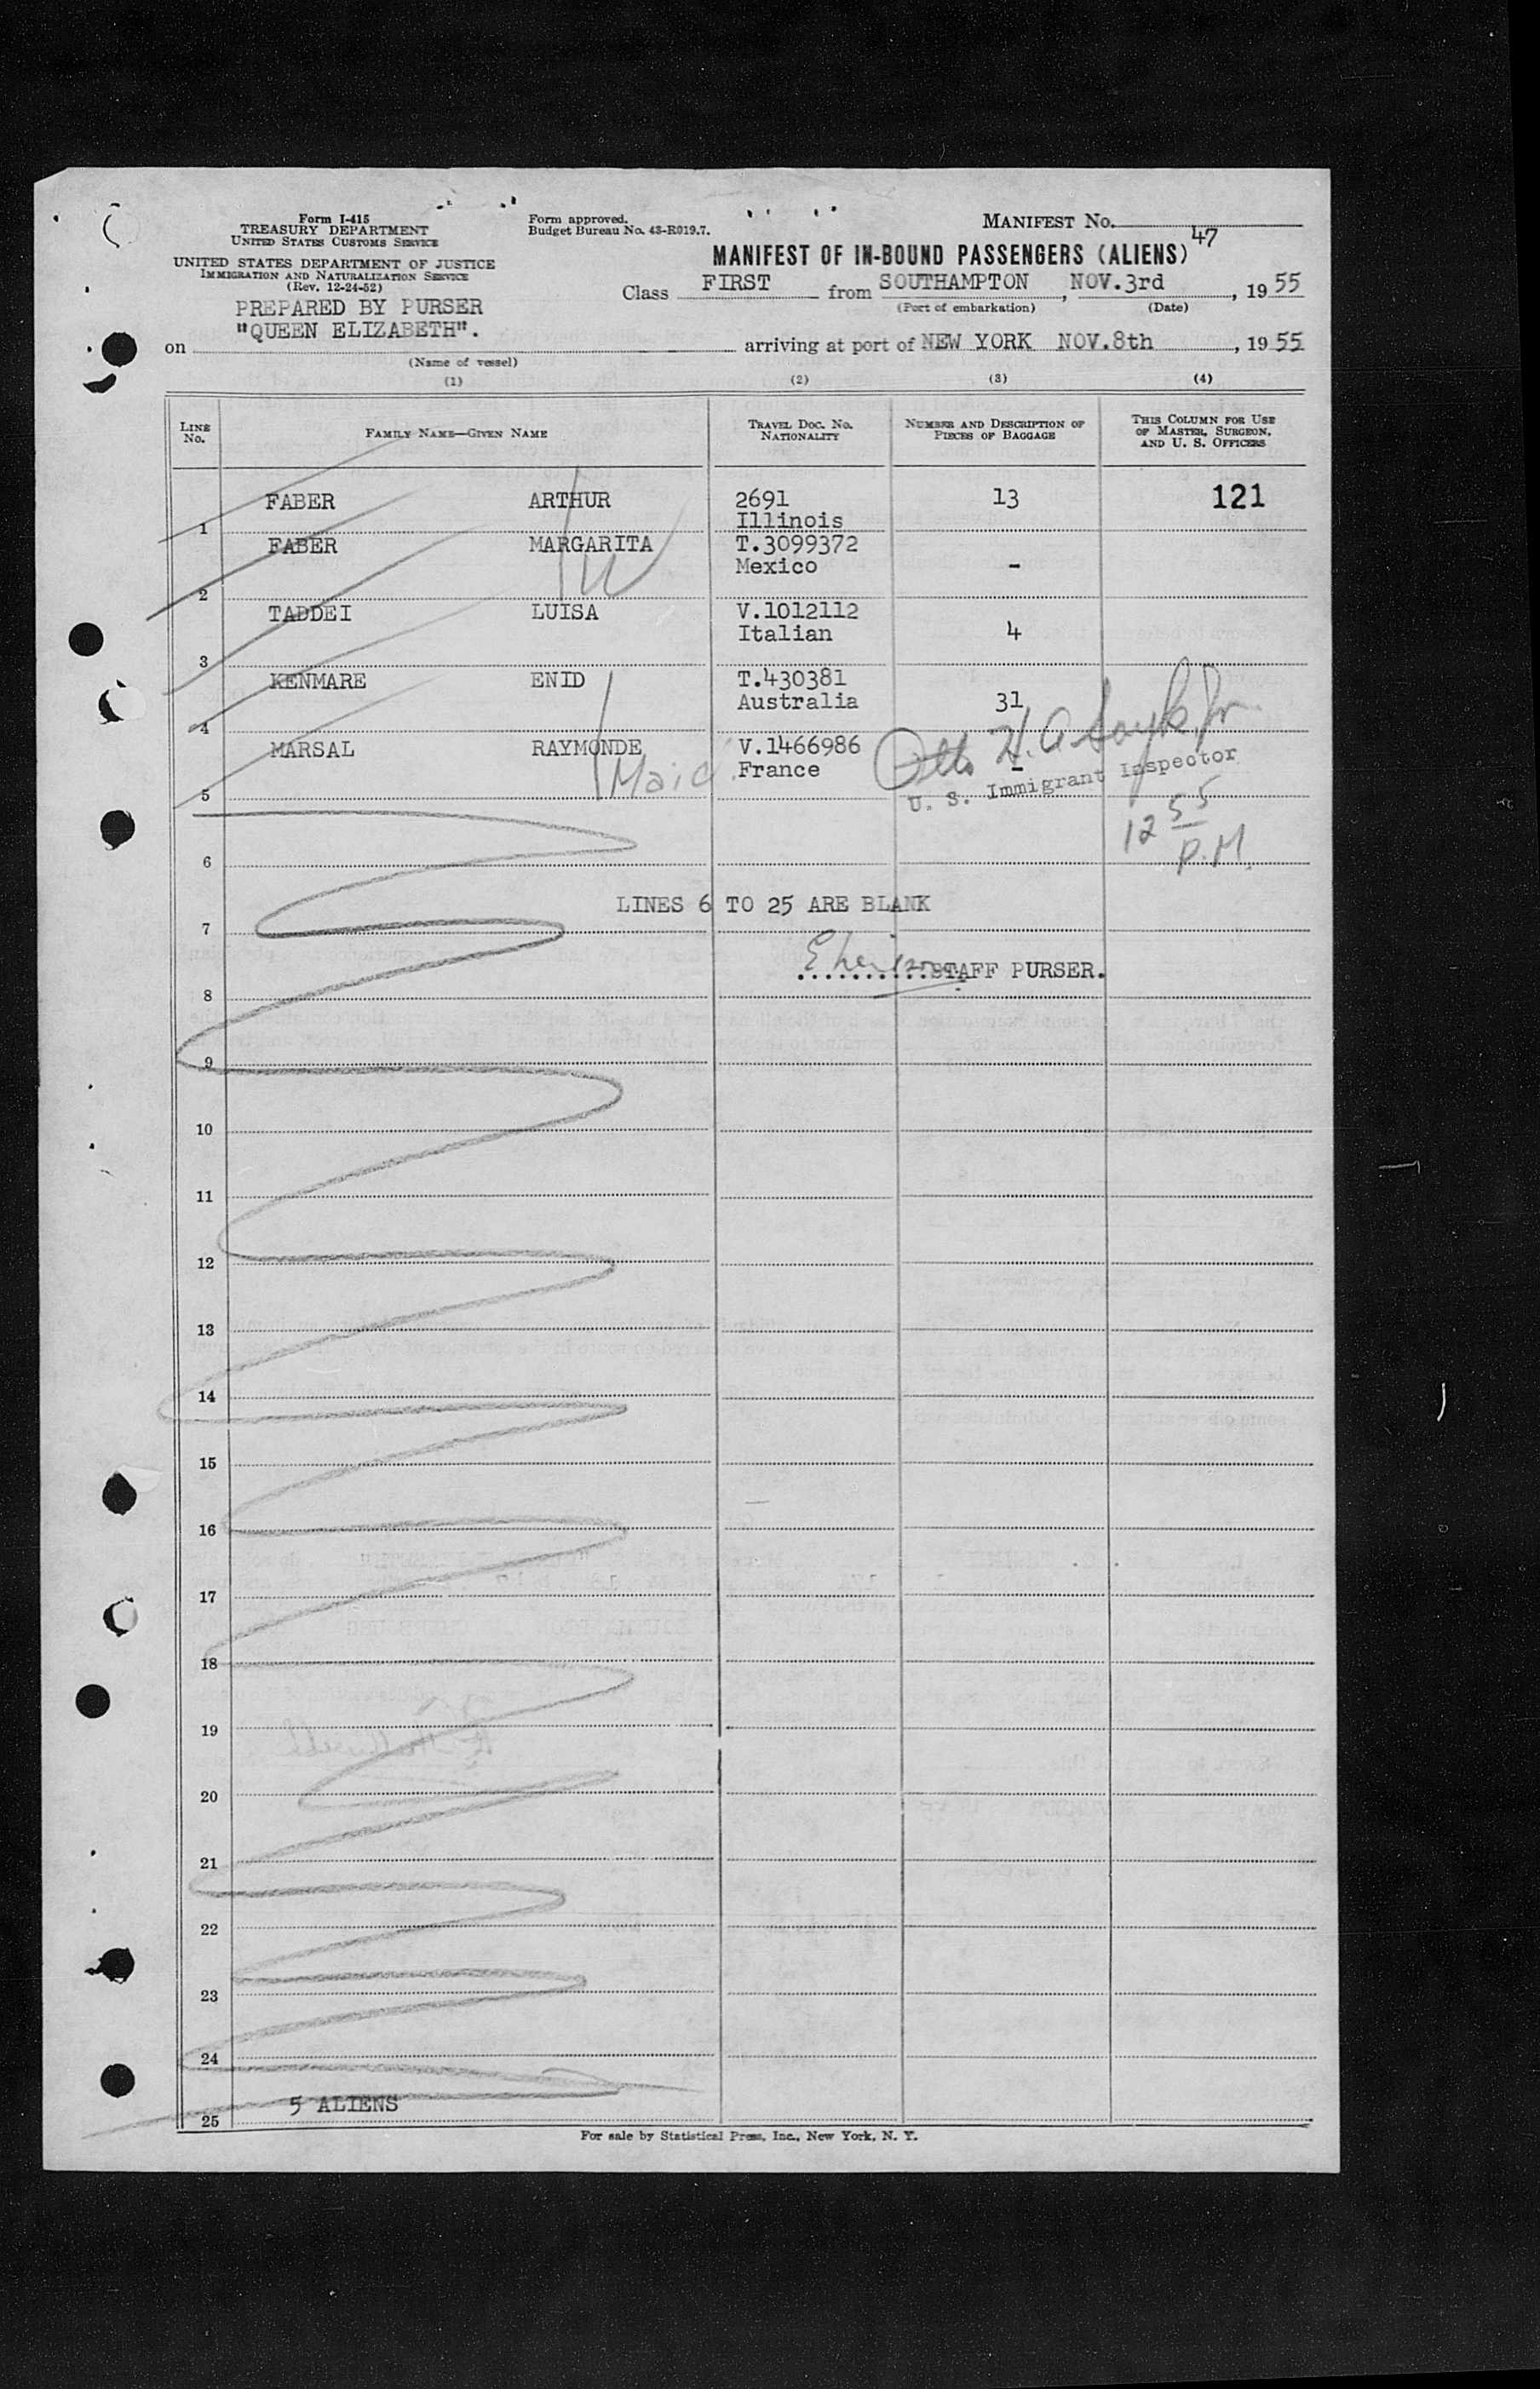 Form I-415
TREASURY DEPARTMENT
UNITED STATES CUSTOMS SERVICE
UNITED STATES DEPARTMENT OF JUSTICE
IMMIGRATION AND NATURALIZATION SERVICE
(Rev. 12-24-52)
PREPARED BY PURSER
Form approved.
Budget Bureau No. 43-R019.7.
MANIFEST NO. 47
MANIFEST OF IN-BOUND PASSENGERS (ALIENS)
Class FIRST from SOUTHAMPTON, NOV.3rd, 19 55
(Port of embarkation) (Date)
on "QUEEN ELIZABETH". arriving at port of NEW YORK NOV.8th, 19 55
(Name of vessel)
(1) (2) (3) (4)
LINE NO. FAMILY NAME—GIVEN NAME TRAVEL DOC. NO. NATIONALITY NUMBER AND DESCRIPTION OF PIECES OF BAGGAGE THIS COLUMN FOR USE OF MASTER, SURGEON, AND U. S. OFFICERS
FABER ARTHUR 2691 13 121
1 Illinois
FABER MARGARITA T.3099372
Mexico -
2
TADDEI LUISA V.1012112
Italian 4
3
KENMARE ENID T.430381
Australia 31
4
MARSAL RAYMONDE V.1466986
France -
5 Maid
Otto H.
U. S. Immigrant Inspector
12 55 P.M.
6
LINES 6 TO 25 ARE BLANK
7
STAFF PURSER.
8
9
10
11
12
13
14
15
16
17
18
19
20
21
22
23
24
5 ALIENS
25
For sale by Statistical Press, Inc., New York, N. Y.